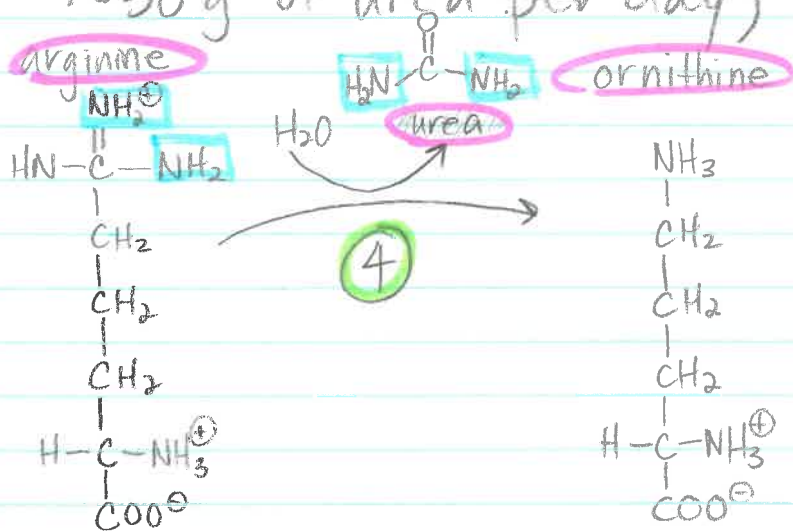 g of urea per day)
arginine
NH2⊕
||
HN-C-NH2
CH2
CH2
CH2
H-C-NH3⊕
COO⊖
H2O
O
||
H2N-C-NH2
urea
4
ornithine
NH3
CH2
CH2
CH2
H-C-NH3⊕
COO⊖